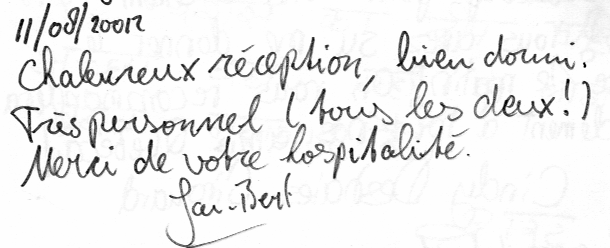 11/08/20012
Chaleureux réception, bien dormi.
Très personnel (tous les deux!)
Merci de votre hospitalité.
Jan-Bert